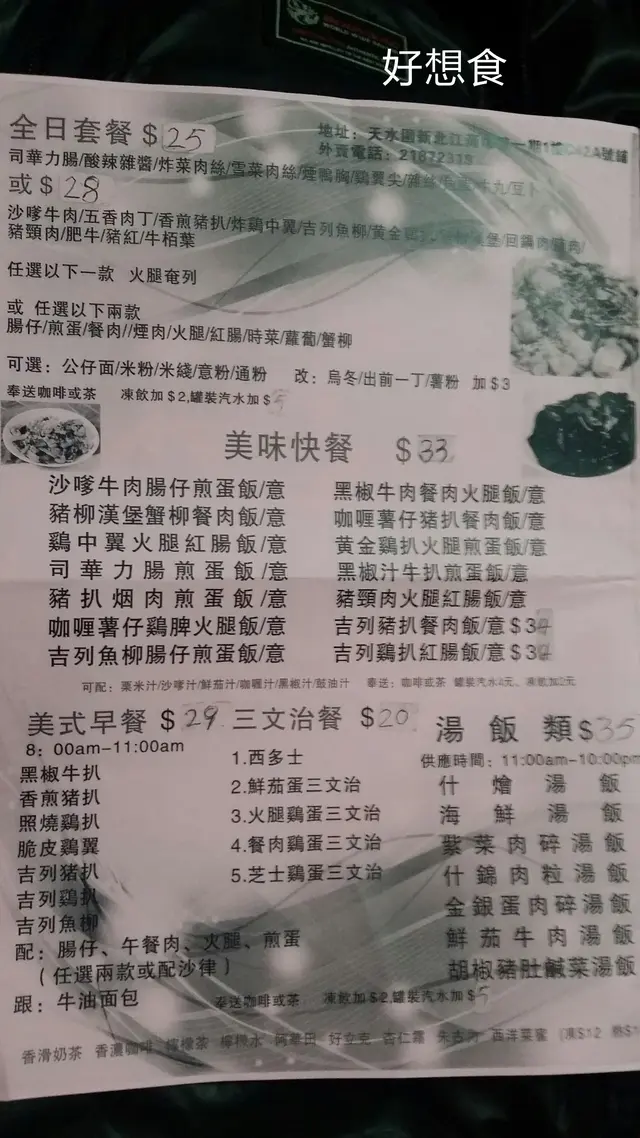 好想食
全日套餐 $25
地址: 天水圍新北江
外賣電話: 21872319
司華力腸/酸辣雜醬/炸菜肉絲/雪菜肉絲/煙鴨胸/鷄翼尖/
或 $28
沙嗲牛肉/五香肉丁/香煎豬扒/炸鷄中翼/吉列魚柳/黄金
豬頸肉/肥牛/豬紅/牛栢葉
任選以下一款 火腿奄列
或 任選以下兩款
腸仔/煎蛋/餐肉//煙肉/火腿/紅腸/時菜/蘿蔔/蟹柳
可選: 公仔面/米粉/米綫/意粉/通粉 改: 烏冬/出前一丁/薯粉 加$3
奉送咖啡或茶 凍飲加$2,罐裝汽水加$5
美味快餐 $33
沙嗲牛肉腸仔煎蛋飯/意
豬柳漢堡蟹柳餐肉飯/意
鷄中翼火腿紅腸飯/意
司華力腸煎蛋飯/意
豬扒烟肉煎蛋飯/意
咖喱薯仔鷄脾火腿飯/意
吉列魚柳腸仔煎蛋飯/意
黑椒牛肉餐肉火腿飯/意
咖喱薯仔豬扒餐肉飯/意
黄金鷄扒火腿煎蛋飯/意
黑椒汁牛扒煎蛋飯/意
豬頸肉火腿紅腸飯/意
吉列豬扒餐肉飯/意$3
吉列鷄扒紅腸飯/意$3
可配: 粟米汁/沙嗲汁/鮮茄汁/咖喱汁/黑椒汁/豉油汁 奉送: 咖啡或茶 罐裝汽水4元、凍飲加2元
美式早餐 $29
8: 00am-11:00am
黑椒牛扒
香煎豬扒
照燒鷄扒
脆皮鷄翼
吉列豬扒
吉列鷄扒
吉列魚柳
配: 腸仔、午餐肉、火腿、煎蛋
(任選兩款或配沙律)
跟: 牛油面包
三文治餐 $20
1.西多士
2.鮮茄蛋三文治
3.火腿鷄蛋三文治
4.餐肉鷄蛋三文治
5.芝士鷄蛋三文治
湯飯類$35
供應時間: 11:00am-10:00pm
什燴湯飯
海鮮湯飯
紫菜肉碎湯飯
什錦肉粒湯飯
金銀蛋肉碎湯飯
鮮茄牛肉湯飯
胡椒豬肚鹹菜湯飯
奉送咖啡或茶 凍飲加$2,罐裝汽水加$5
香滑奶茶 香濃咖啡 檸檬茶 檸檬水 阿華田 好立克 杏仁霜 朱古力 西洋菜蜜 (凍$12